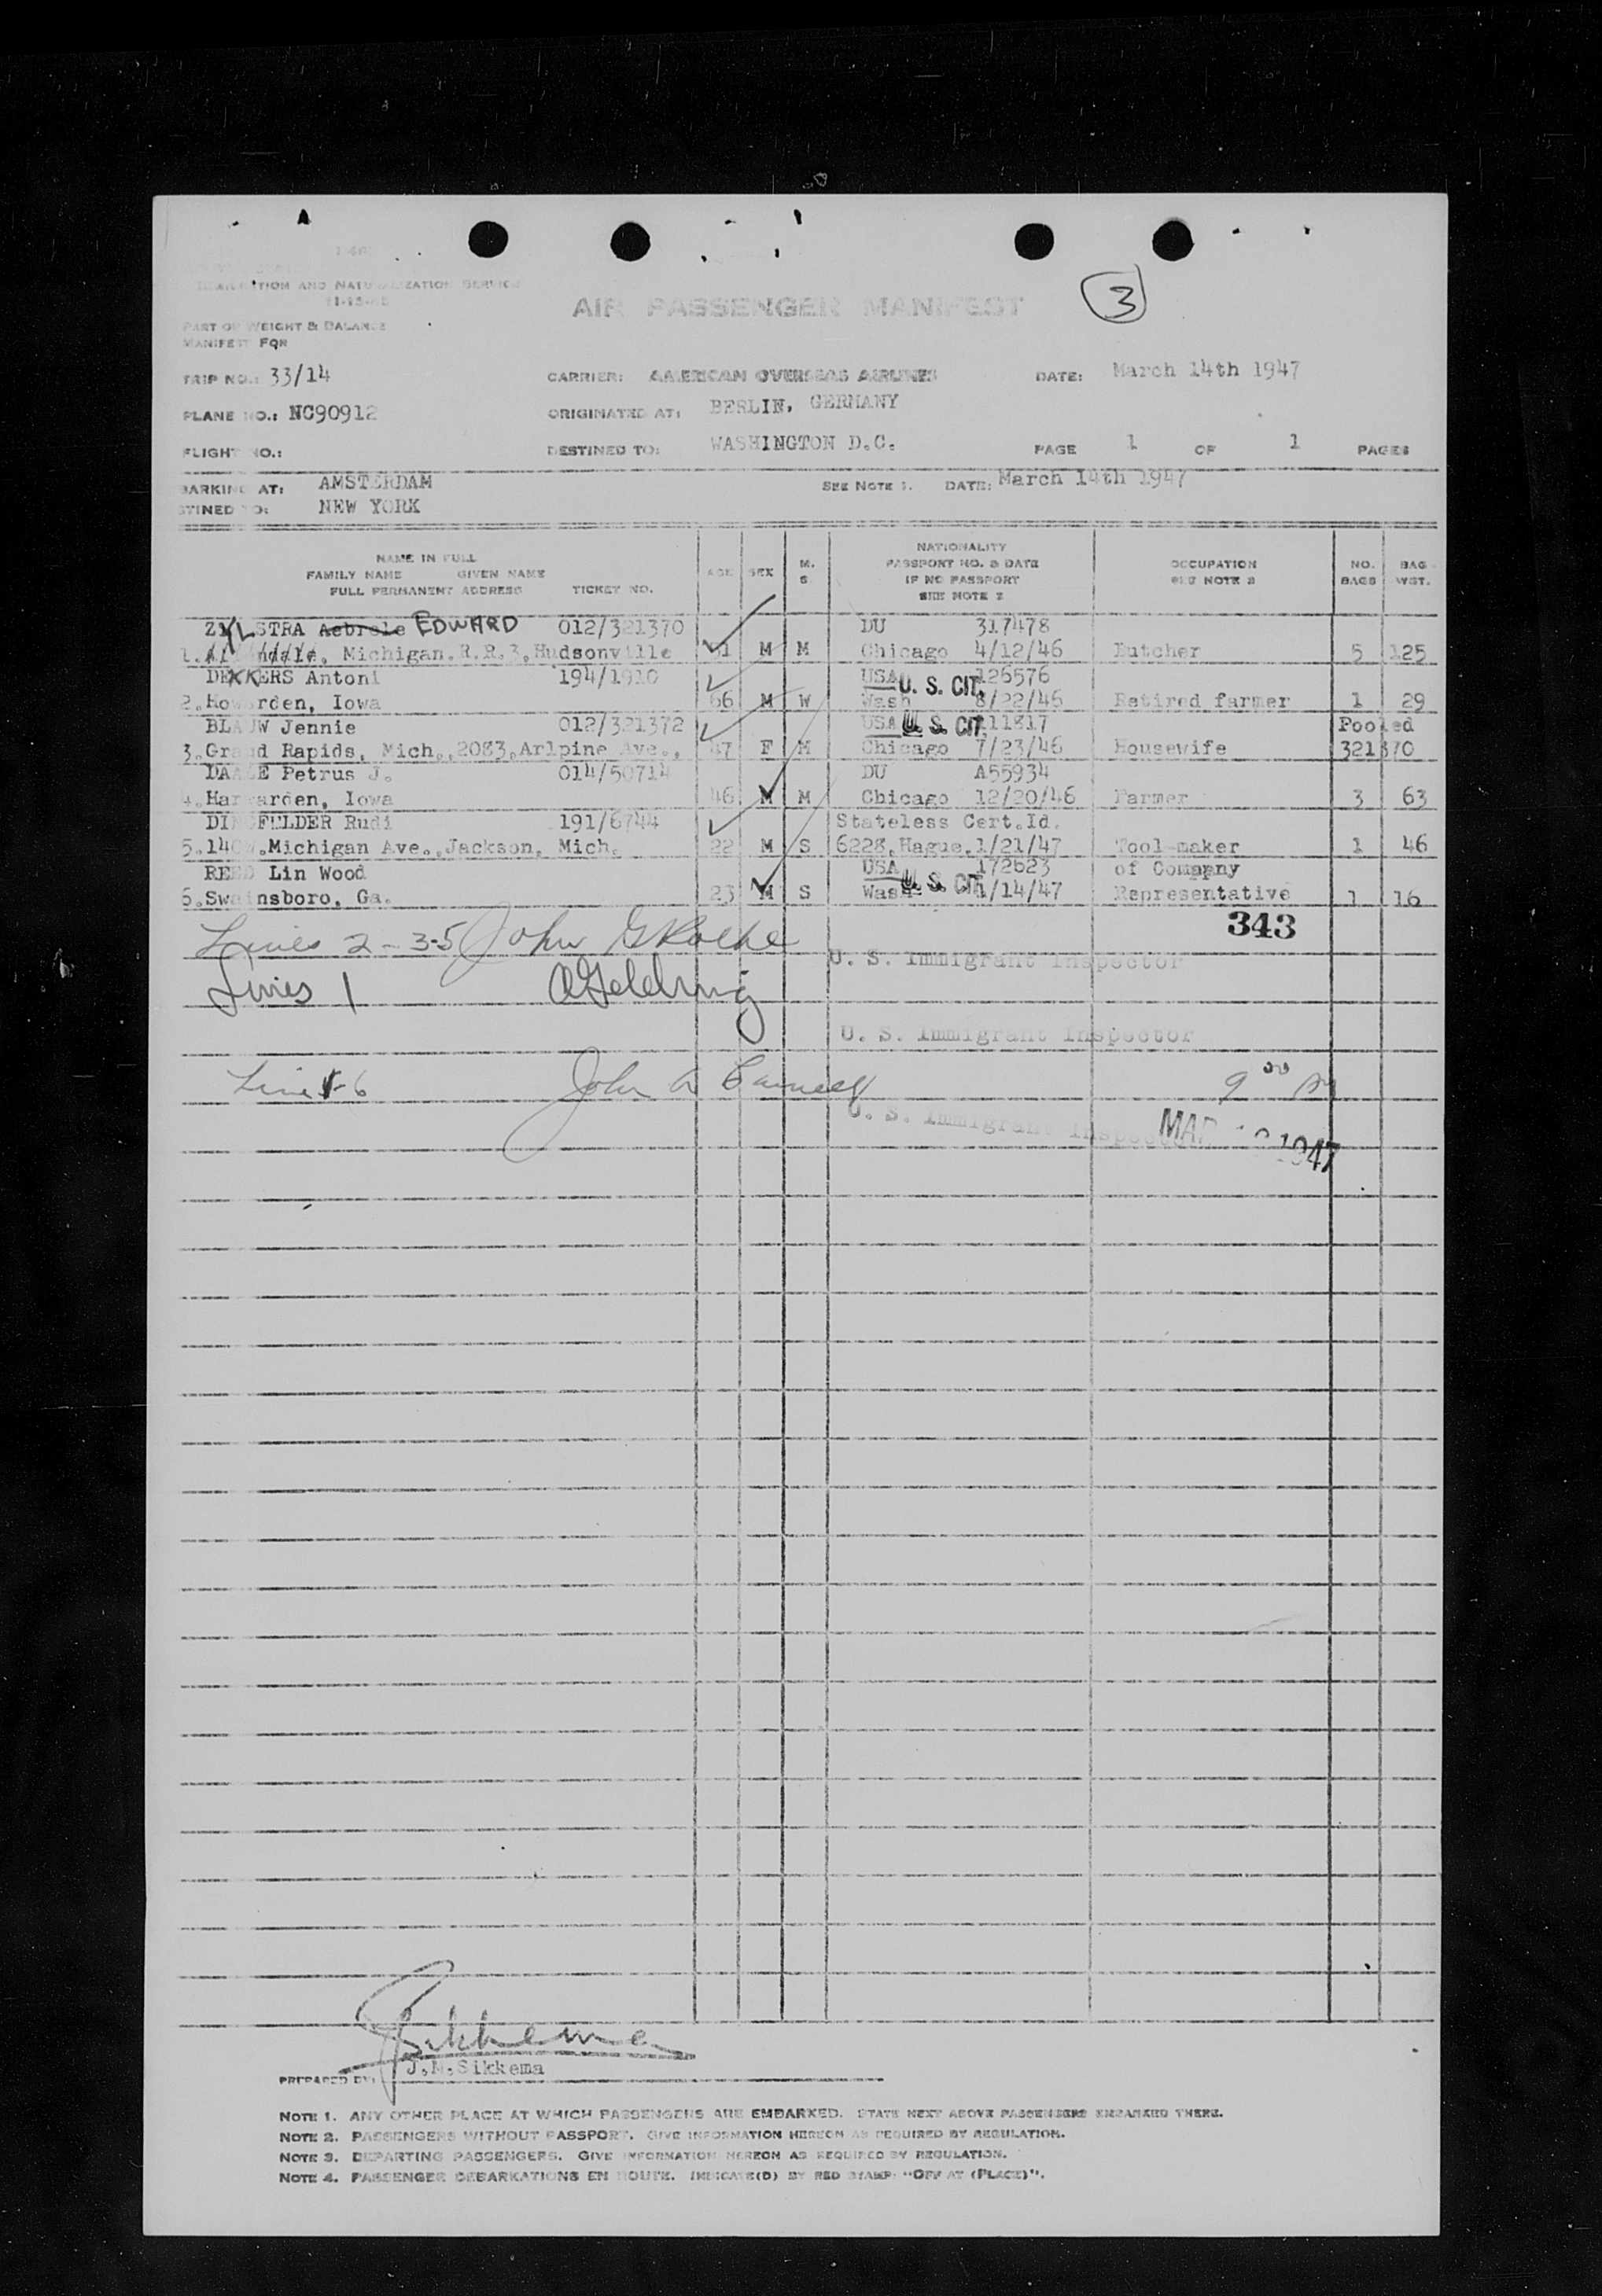 AIR PASSENGER MANIFEST
3
PART OF WEIGHT & BALANCE
MANIFEST FOR
TRIP NO.: 33/14 CARRIER: AMERICAN OVERSEAS AIRLINES DATE: March 14th 1947
PLANE NO.: NC90912 ORIGINATED AT: BERLIN, GERMANY
FLIGHT NO.: DESTINED TO: WASHINGTON D.C. PAGE 1 OF 1 PAGES
BARKING AT: AMSTERDAM SEE NOTE 1. DATE: March 14th 1947
STINED TO: NEW YORK
NAME IN FULL
FAMILY NAME GIVEN NAME
FULL PERMANENT ADDRESS TICKET NO. AGE SEX M. S. NATIONALITY PASSPORT NO. & DATE IF NO PASSPORT SEE NOTE 2 OCCUPATION SEE NOTE 3 NO. BAGS BAG WGT.
ZYLSTRA EDWARD 012/321370 DU 317478
1. Michigan.R.R.3,Hudsonville M M Chicago 4/12/46 Butcher 5 125
DEKKERS Antoni 194/1910 USA 126576
U. S. CIT.
2. Iowa 66 M W Wash 8/22/46 Retired farmer 1 29
BLAUW Jennie 012/321372 USA 11817 Pooled
U. S. CIT.
3.Grand Rapids, Mich.,2083.Arlpine Ave., 47 F M Chicago 7/23/46 Housewife 321370
Petrus J. 014/50714 DU A55934
4. Iowa 46 M M Chicago 12/20/46 Farmer 3 63
FELDER Rudi 191/6744 Stateless Cert.Id.
5. Michigan Ave.,Jackson, Mich. 22 M S 6228,Hague.1/21/47 Tool-maker 1 46
REED Lin Wood USA 172623 of Company
U. S. CIT.
6.Swainsboro, Ga. 23 M S Wash 1/14/47 Representative 1 16
343
Lines 2-3-5 John
U. S. Immigrant Inspector
Lines 1
U. S. Immigrant Inspector
Line 6 John
9 00
U. S. Immigrant Inspector
1947
Sikkema
J.M.Sikkema
PREPARED BY:
NOTE 1. ANY OTHER PLACE AT WHICH PASSENGERS ARE EMBARKED. STATE NEXT ABOVE PASSENGERS EMBARKED THERE.
NOTE 2. PASSENGERS WITHOUT PASSPORT. GIVE INFORMATION HEREON AS REQUIRED BY REGULATION.
NOTE 3. DEPARTING PASSENGERS. GIVE INFORMATION HEREON AS REQUIRED BY REGULATION.
NOTE 4. PASSENGER DEBARKATIONS EN ROUTE. INDICATE(D) BY RED STAMP: "OFF AT (PLACE)".